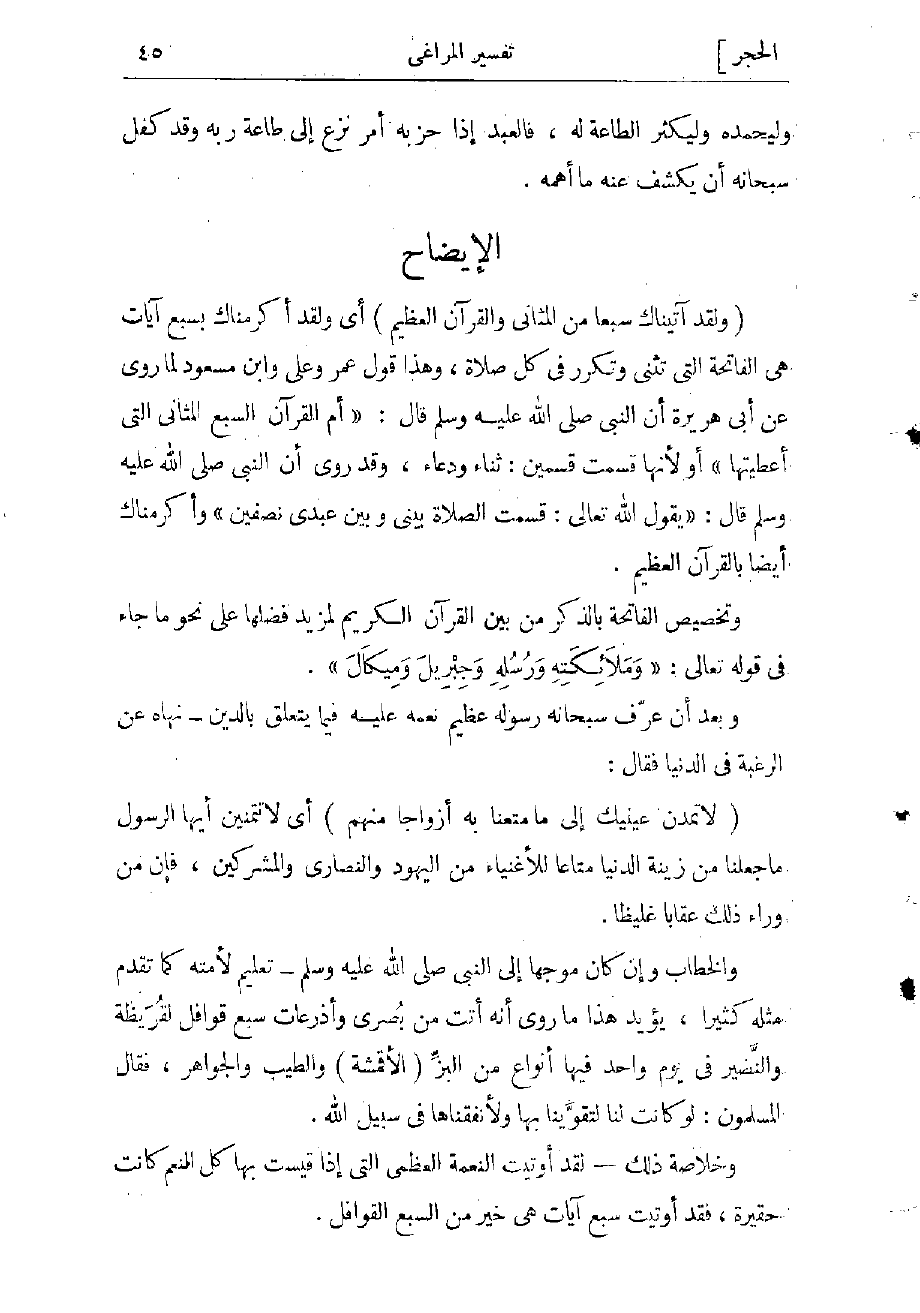 الحجر ] تفسير المراغى ٤٥
وليحمده وليكثر الطاعة له ، فالعبد إذا حزبه أمر نزع إلى طاعة ربه وقد كفل
سبحانه أن يكشف عنه ما أهمه .
الإيضاح
( ولقد آتيناك سبعا من المثانى والقرآن العظيم ) أى ولقد أكرمناك بسبع آيات
هى الفاتحة التى تثنى وتكرر فى كل صلاة ، وهذا قول عمر وعلى وابن مسعود لما روى
عن أبى هريرة أن النبى صلى الله عليه وسلم قال : « أم القرآن السبع المثانى التى
أعطيتها » أو لأنها قسمت قسمين : ثناء ودعاء ، وقد روى أن النبى صلى الله عليه
وسلم قال : « يقول الله تعالى : قسمت الصلاة بينى وبين عبدى نصفين » وأكرمناك
أيضا بالقرآن العظيم .
وتخصيص الفاتحة بالذكر من بين القرآن الكريم لمزيد فضلها على نحو ما جاء
فى قوله تعالى : « وَمَلَائِكَتِهِ وَرُسُلِهِ وَجِبْرِيلَ وَمِيكَالَ » .
وبعد أن عرّف سبحانه رسوله عظيم نعمه عليه فيما يتعلق بالدين – نهاه عن
الرغبة فى الدنيا فقال :
( لاتمدن عينيك إلى مامتعنا به أزواجا منهم ) أى لاتتمنين أيها الرسول
ماجعلنا من زينة الدنيا متاعا للأغنياء من اليهود والنصارى والمشركين ، فإن من
وراء ذلك عقابا غليظا .
والخطاب وإن كان موجها إلى النبى صلى الله عليه وسلم – تعليم لأمته كما تقدم
مثله كثيرا ، يؤيد هذا ما روى أنه أتت من بُصرى وأذرعات سبع قوافل لقُرَيظة
والنَّضير فى يوم واحد فيها أنواع من البزّ ( الأقمشة ) والطيب والجواهر ، فقال
المسلمون : لو كانت لنا لتقوَّينا بها ولأنفقناها فى سبيل الله .
وخلاصة ذلك – لقد أوتيت النعمة العظمى التى إذا قيست بها كل النعم كانت
حقيرة ، فقد أوتيت سبع آيات هى خير من السبع القوافل .